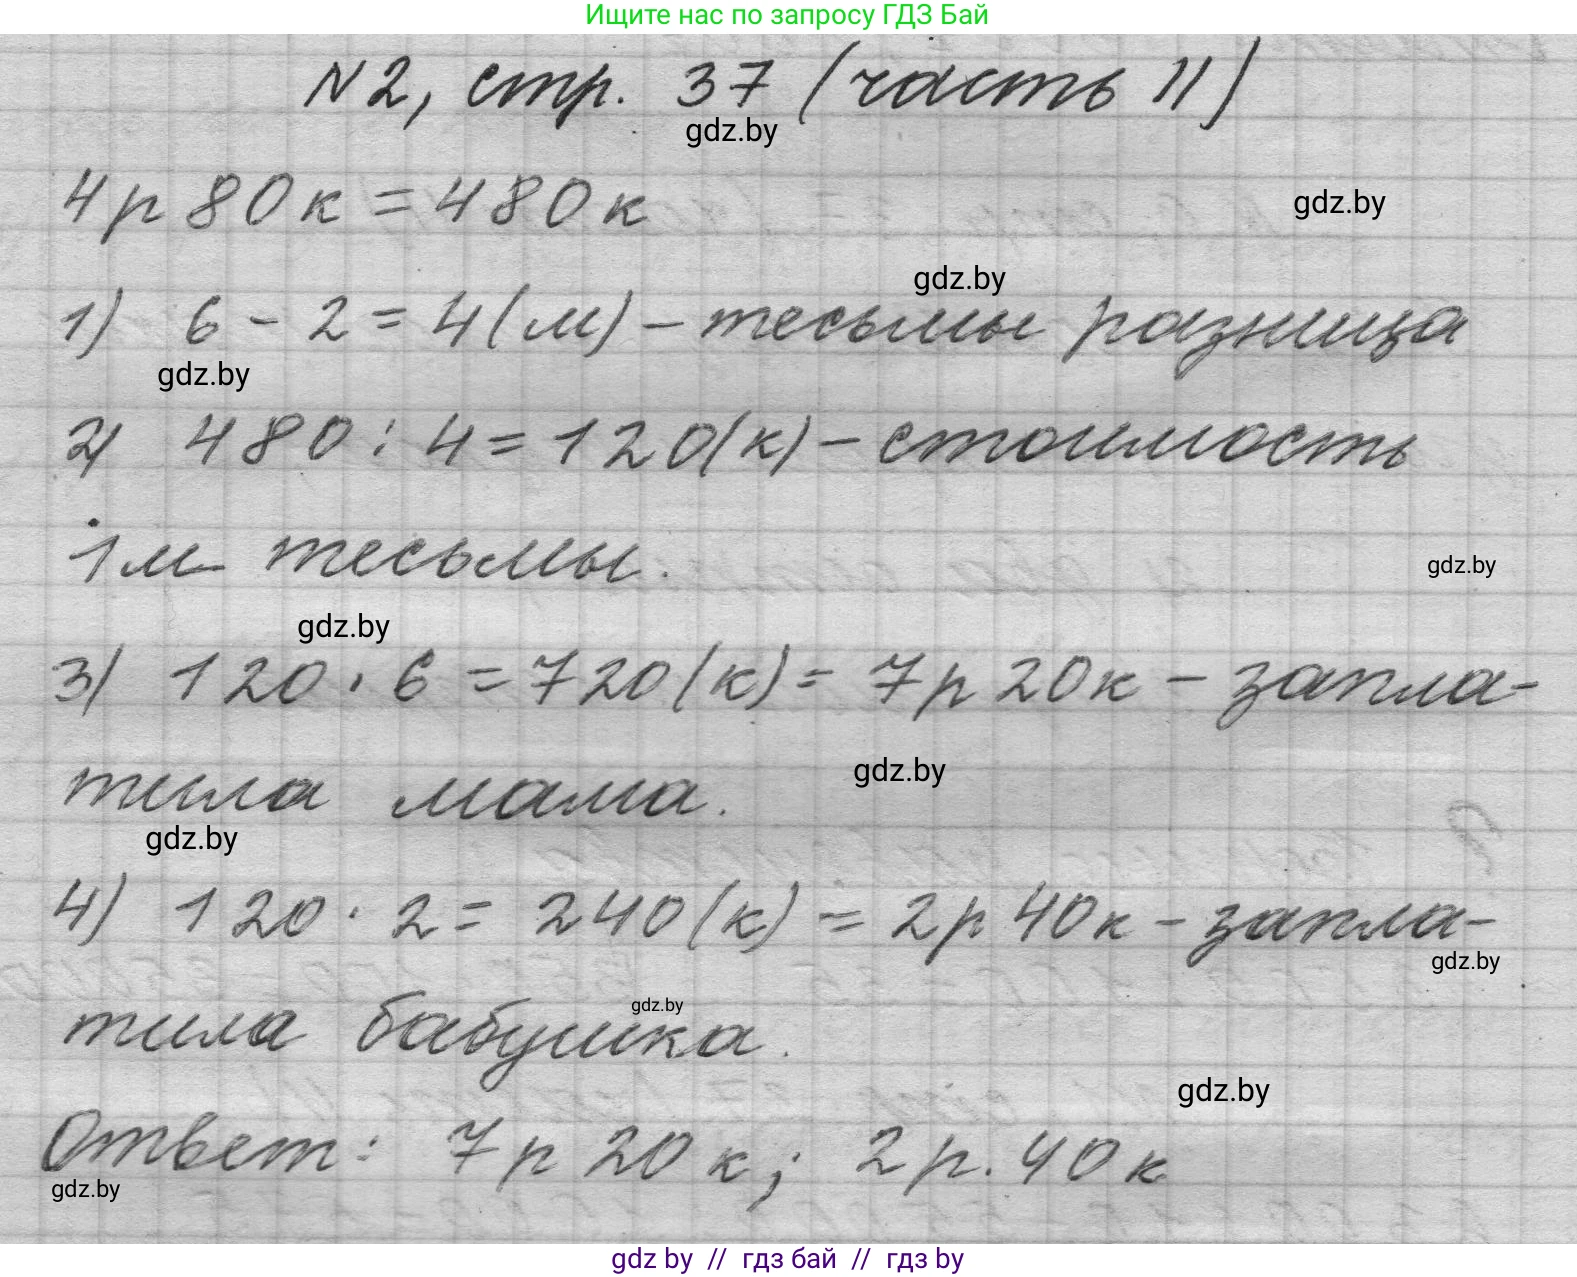 Ищите нас по запросу ГДЗ Бай
N2, стр. 37 (часть II)
gdz.by
4р 80к = 480к
gdz.by
gdz.by
1) 6 - 2 = 4(м) - тесьмы разница
gdz.by
2) 480 : 4 = 120(к) - стоимость
1м тесьмы.
gdz.by
gdz.by
3) 120 · 6 = 720(к) = 7р 20к - запла-
тила мама.
gdz.by
gdz.by
4) 120 · 2 = 240(к) = 2р 40к - запла-
gdz.by
тила бабушка.
gdz.by
gdz.by
Ответ: 7р 20к; 2р. 40к
gdz.by
gdz by // гдз бай // гдз by